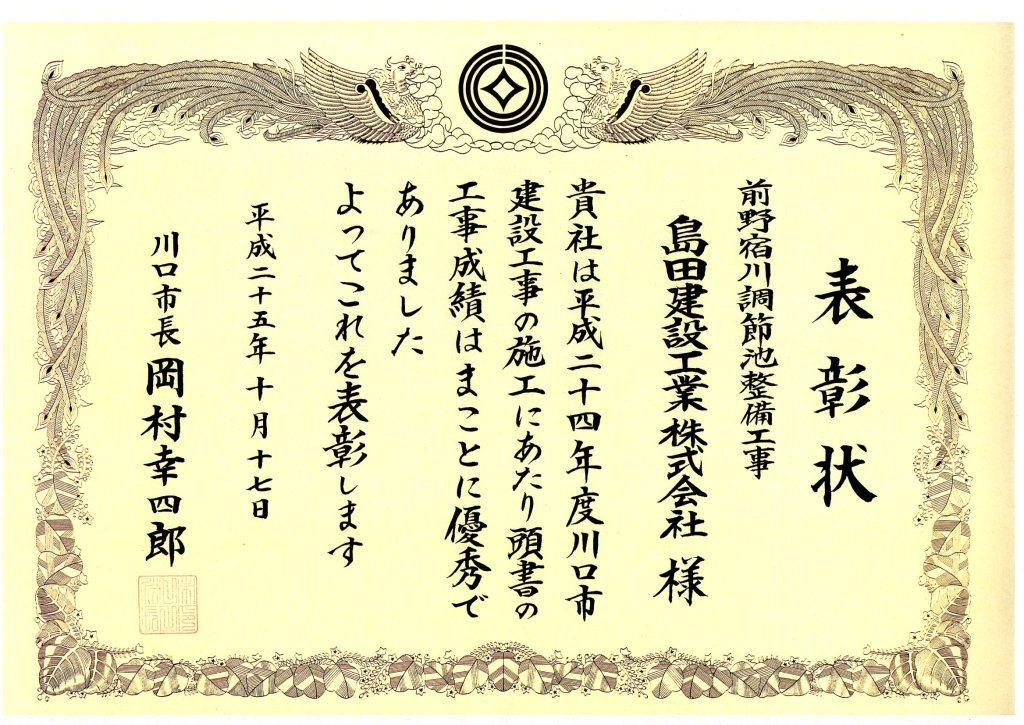 表彰状
前野宿川調節池整備工事
島田建設工業株式会社 様
貴社は平成二十四年度川口市
建設工事の施工にあたり頭書の
工事成績はまことに優秀で
ありました
よってこれを表彰します
平成二十五年十月十七日
川口市長 岡村幸四郎